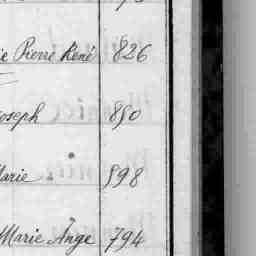 ie Pierre René 826
oseph 850
Marie 898
Marie Ange 794